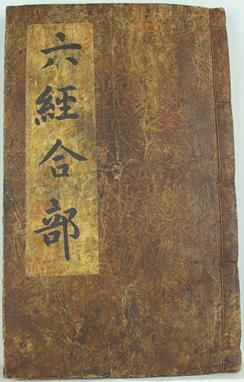 六經合部